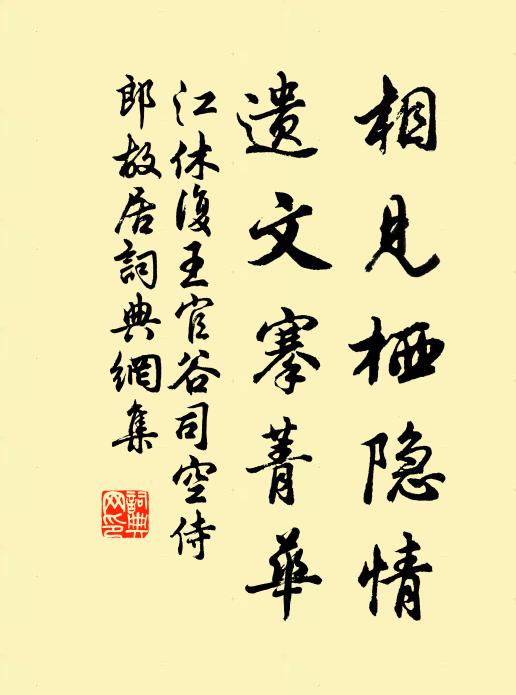 相见栖隐情
遗文搴菁华
江休復王官谷司空侍
郎故居詞典網集
詞典
网印